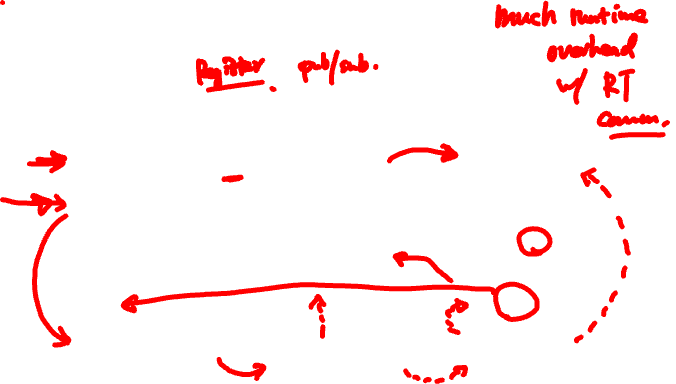 Register pub/sub.
much runtime
overhead
w/ RT
comm.